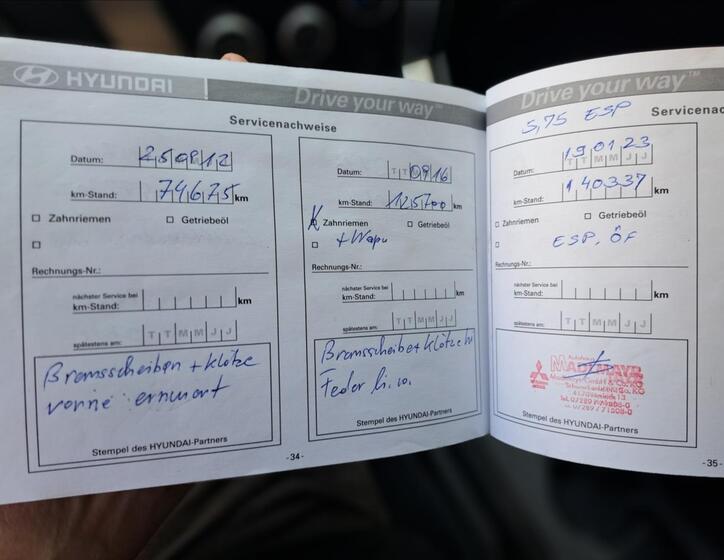 HYUNDAI
Drive your way™
Servicenachweise
Datum: 250812
km-Stand: 74675 km
Zahnriemen
Getriebeöl
Rechnungs-Nr.:
nächster Service bei
km-Stand: km
spätestens am: T T M M J J
Bremsscheiben + Klötze
vorne erneuert
Stempel des HYUNDAI-Partners
Datum: T T 0916
km-Stand: 125700 km
X Zahnriemen
Getriebeöl
+ Wapu
Rechnungs-Nr.:
nächster Service bei
km-Stand: km
spätestens am: T T M M J J
Bremsscheibe + Klötze hi
Feder h. w.
Stempel des HYUNDAI-Partners
- 34 -
Drive your way™
5,75 ESP
Servicenach
Datum: 190123
km-Stand: 140337
Zahnriemen
Getriebeöl
ESP, ÖF
Rechnungs-Nr.:
nächster Service bei
km-Stand: km
spätestens am: T T M M J J
Autohaus
Stempel des HYUNDAI-Partners
- 35 -